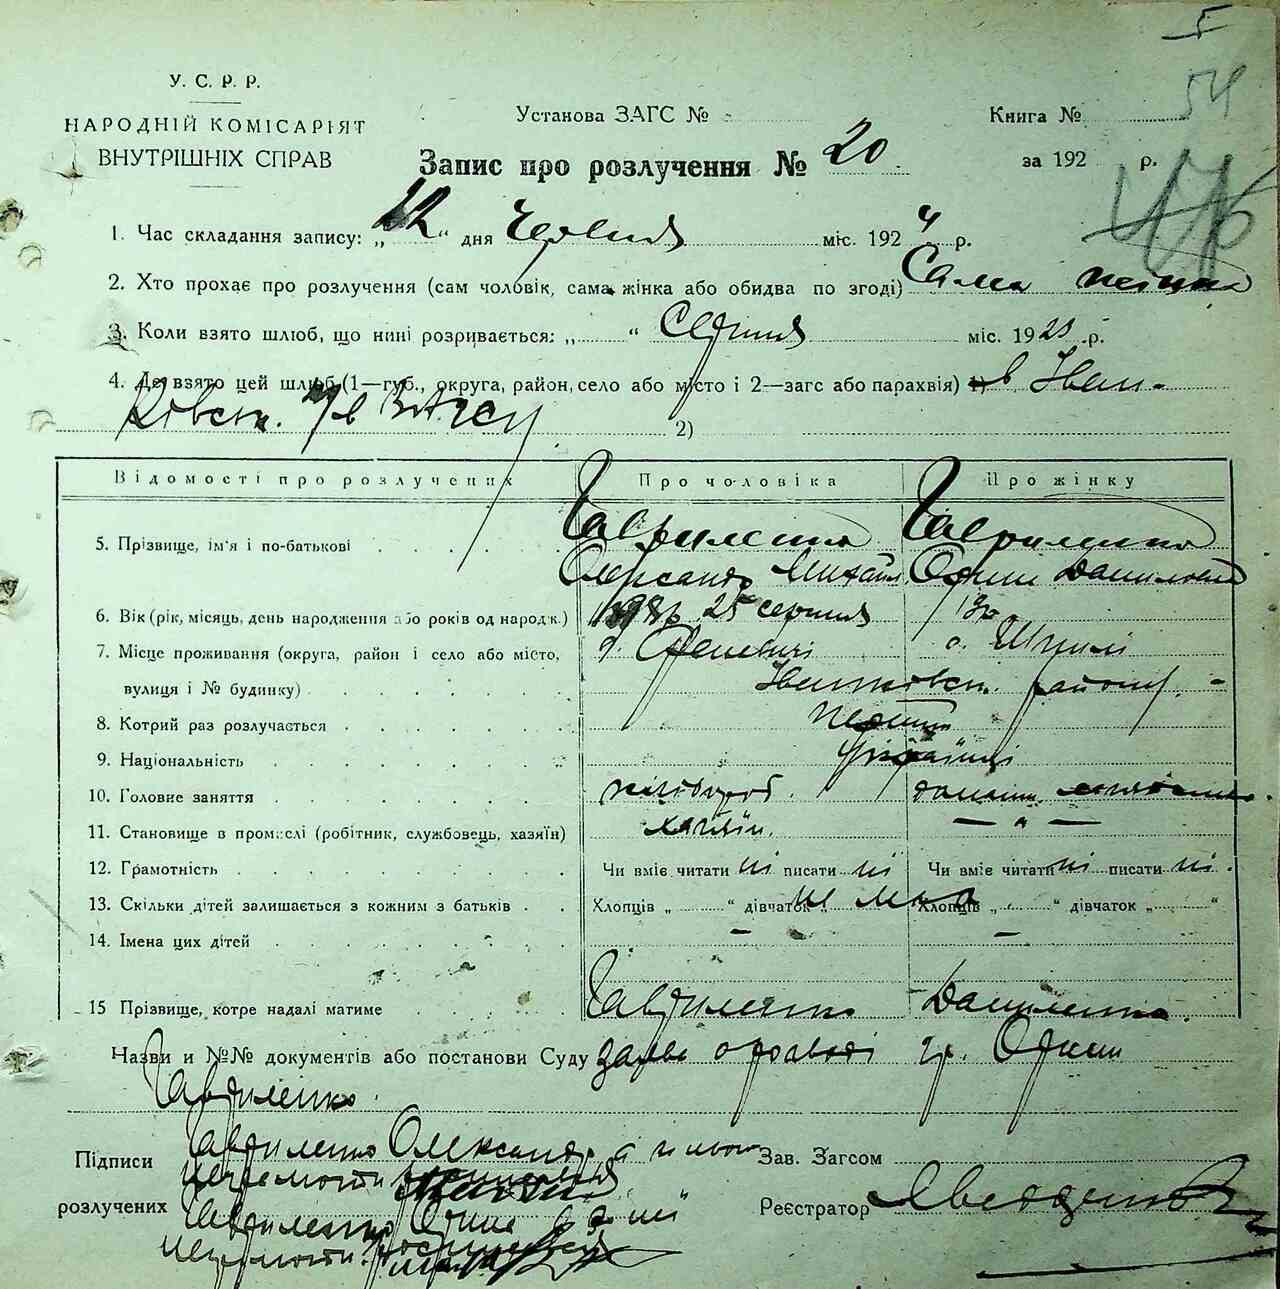 У. С. Р. Р.
НАРОДНІЙ КОМІСАРІЯТ
ВНУТРІШНІХ СПРАВ
Установа ЗАГС №
Книга №
54
Запис про розлучення № 20
за 192 р.
1. Час складання запису: „22“ дня Червня міс. 1924 р.
2. Хто прохає про розлучення (сам чоловік, сама жінка або обидва по згоді) Сама жінка
3. Коли взято шлюб, що нині розривається: „ “ Серпня міс. 1923 р.
4. Де взято цей шлюб (1—губ., округа, район, село або місто і 2—загс або парахвія) 1) в Іван-
ківськ. 2)
Відомості про розлучених
Про чоловіка
Про жінку
5. Прізвище, ім'я і по-батькові
Гавриленко
Олександр Михайл.
Гавриленко
Данилівна
6. Вік (рік, місяць, день народження або років од народж.)
25 серпня
7. Місце проживання (округа, район і село або місто,
вулиця і № будинку)
Іванківськ. району
8. Котрий раз розлучається
перший
9. Національність
Українці
10. Головне заняття
хлібороб.
домашн.
11. Становище в промислі (робітник, службовець, хазяїн)
хазяїн.
— „ —
12. Грамотність
Чи вміє читати ні писати ні
Чи вміє читати ні писати ні.
13. Скільки дітей залишається з кожним з батьків
Хлопців „ “ дівчаток „
Хлопців „ “ дівчаток „ “
14. Імена цих дітей
—
—
15 Прізвище, котре надалі матиме
Гавриленко
Даниленко.
Назви и №№ документів або постанови Суду заява о розводі гр.
Гавриленко.
Підписи
розлучених
Гавриленко Олександр а
Гавриленко
Зав. Загсом
Реєстратор